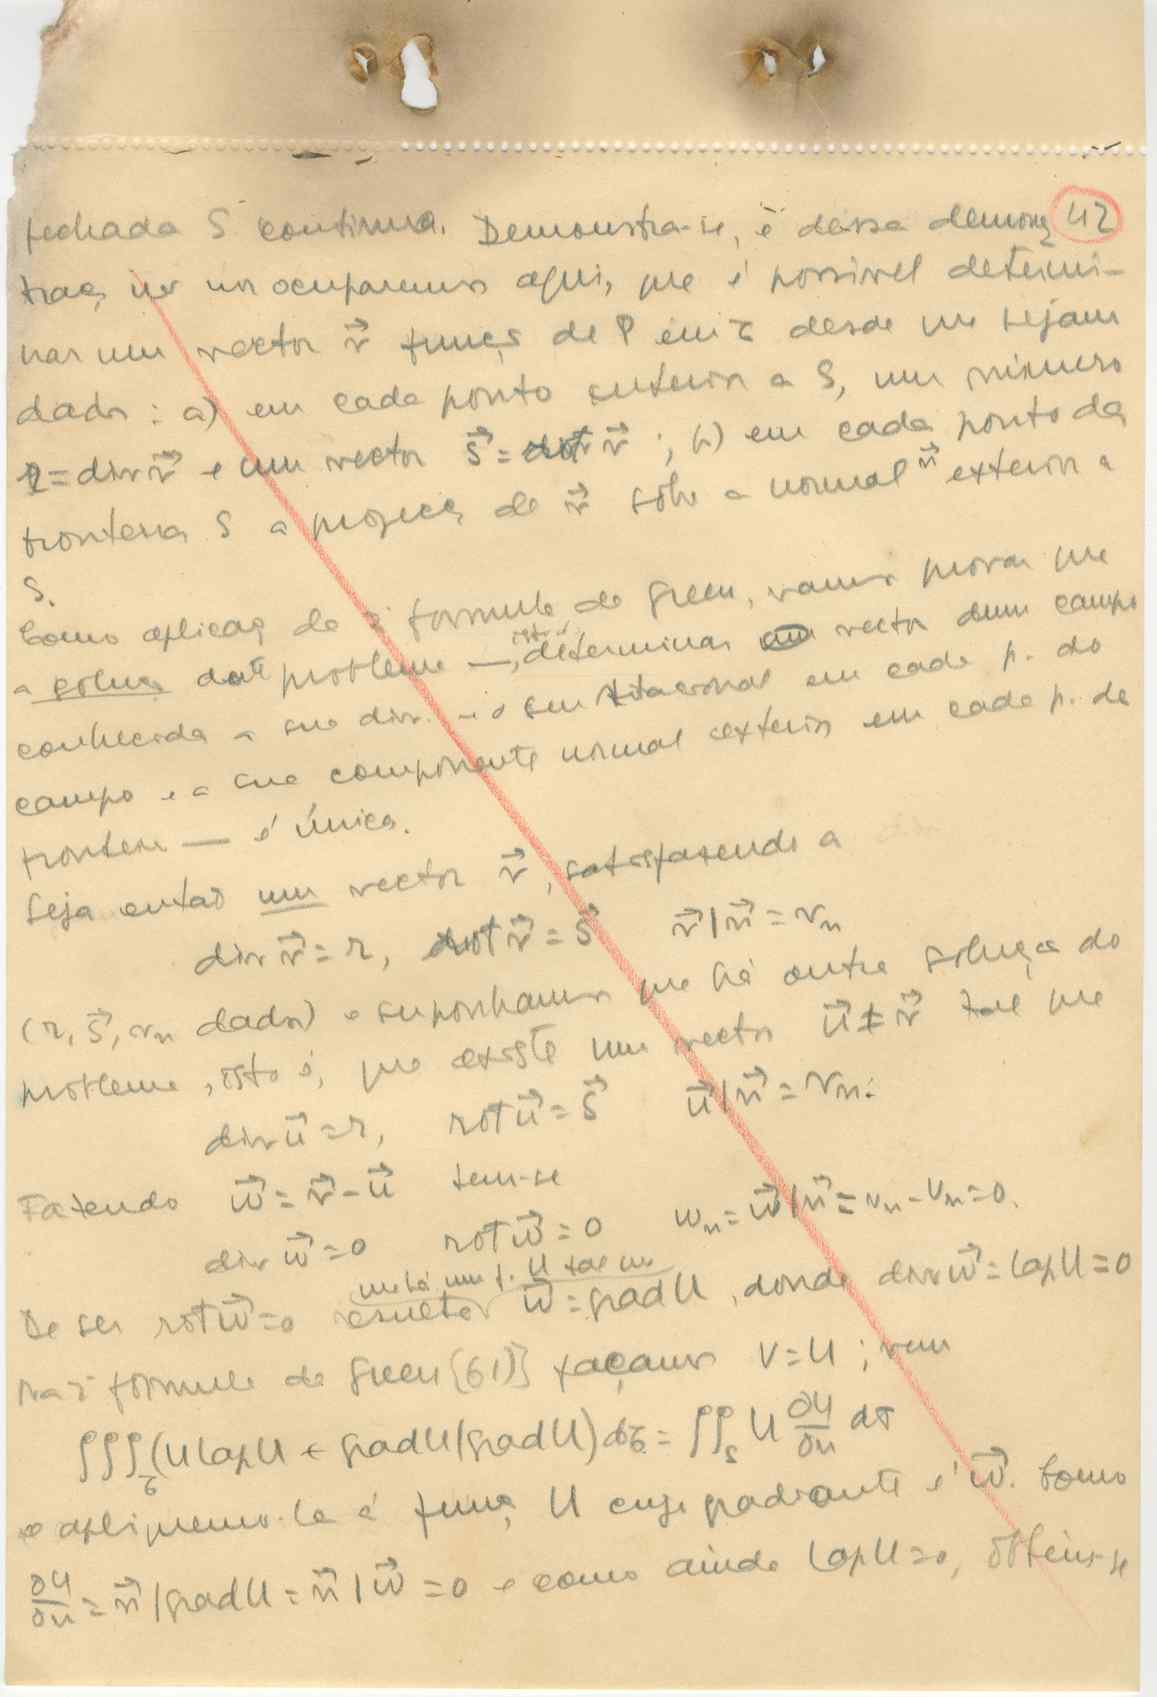 fechada S contínua. Demonstra-se, e dessa demons 42
traç nos ocuparemos aqui, que é possível determi-
nar um vector v⃗ funç de P em τ desde que sejam
dados: a) em cada ponto interior a S, um número
r = div v⃗ e um vector s⃗ = rot v⃗ ; b) em cada ponto da
fronteira S a projecç de v⃗ sobre a normal n⃗ exterior a
S.
Como aplicaç da 2ª fórmula de Green, vamos provar que
a soluç deste problema — isto é, determinar vector dum campo
conhecida a sua div. e o seu rotacional em cada p. do
campo e a sua componente normal exterior em cada p. da
fronteira — é única.
Seja então um vector v⃗, satisfazendo a
div v⃗ = r, rot v⃗ = s⃗ v⃗ | n⃗ = vn
(r, s⃗, vn dados) e suponhamos que há outra solução do
problema, isto é, que existe um vector u⃗ ≠ v⃗ tal que
div u⃗ = r, rot u⃗ = s⃗ u⃗ | n⃗ = vn:
Fazendo w⃗ = v⃗ - u⃗ tem-se
div w⃗ = 0 rot w⃗ = 0 wn = w⃗ | n⃗ = vn - vn = 0.
que há uma f. U tal que
De ser rot w⃗ = 0 resulta w⃗ = grad U, donde div w⃗ = lap U = 0
Na fórmula de Green [61)] façamos V = U ; vem
∫∫∫τ (U lap U + grad U | grad U) dτ = ∫∫S U ∂U/∂n dσ
e apliquemo-la à funç U cujo gradiante é w⃗. Como
∂U/∂n = n⃗ | grad U = n⃗ | w⃗ = 0 e como ainda lap U = 0, obtem-se